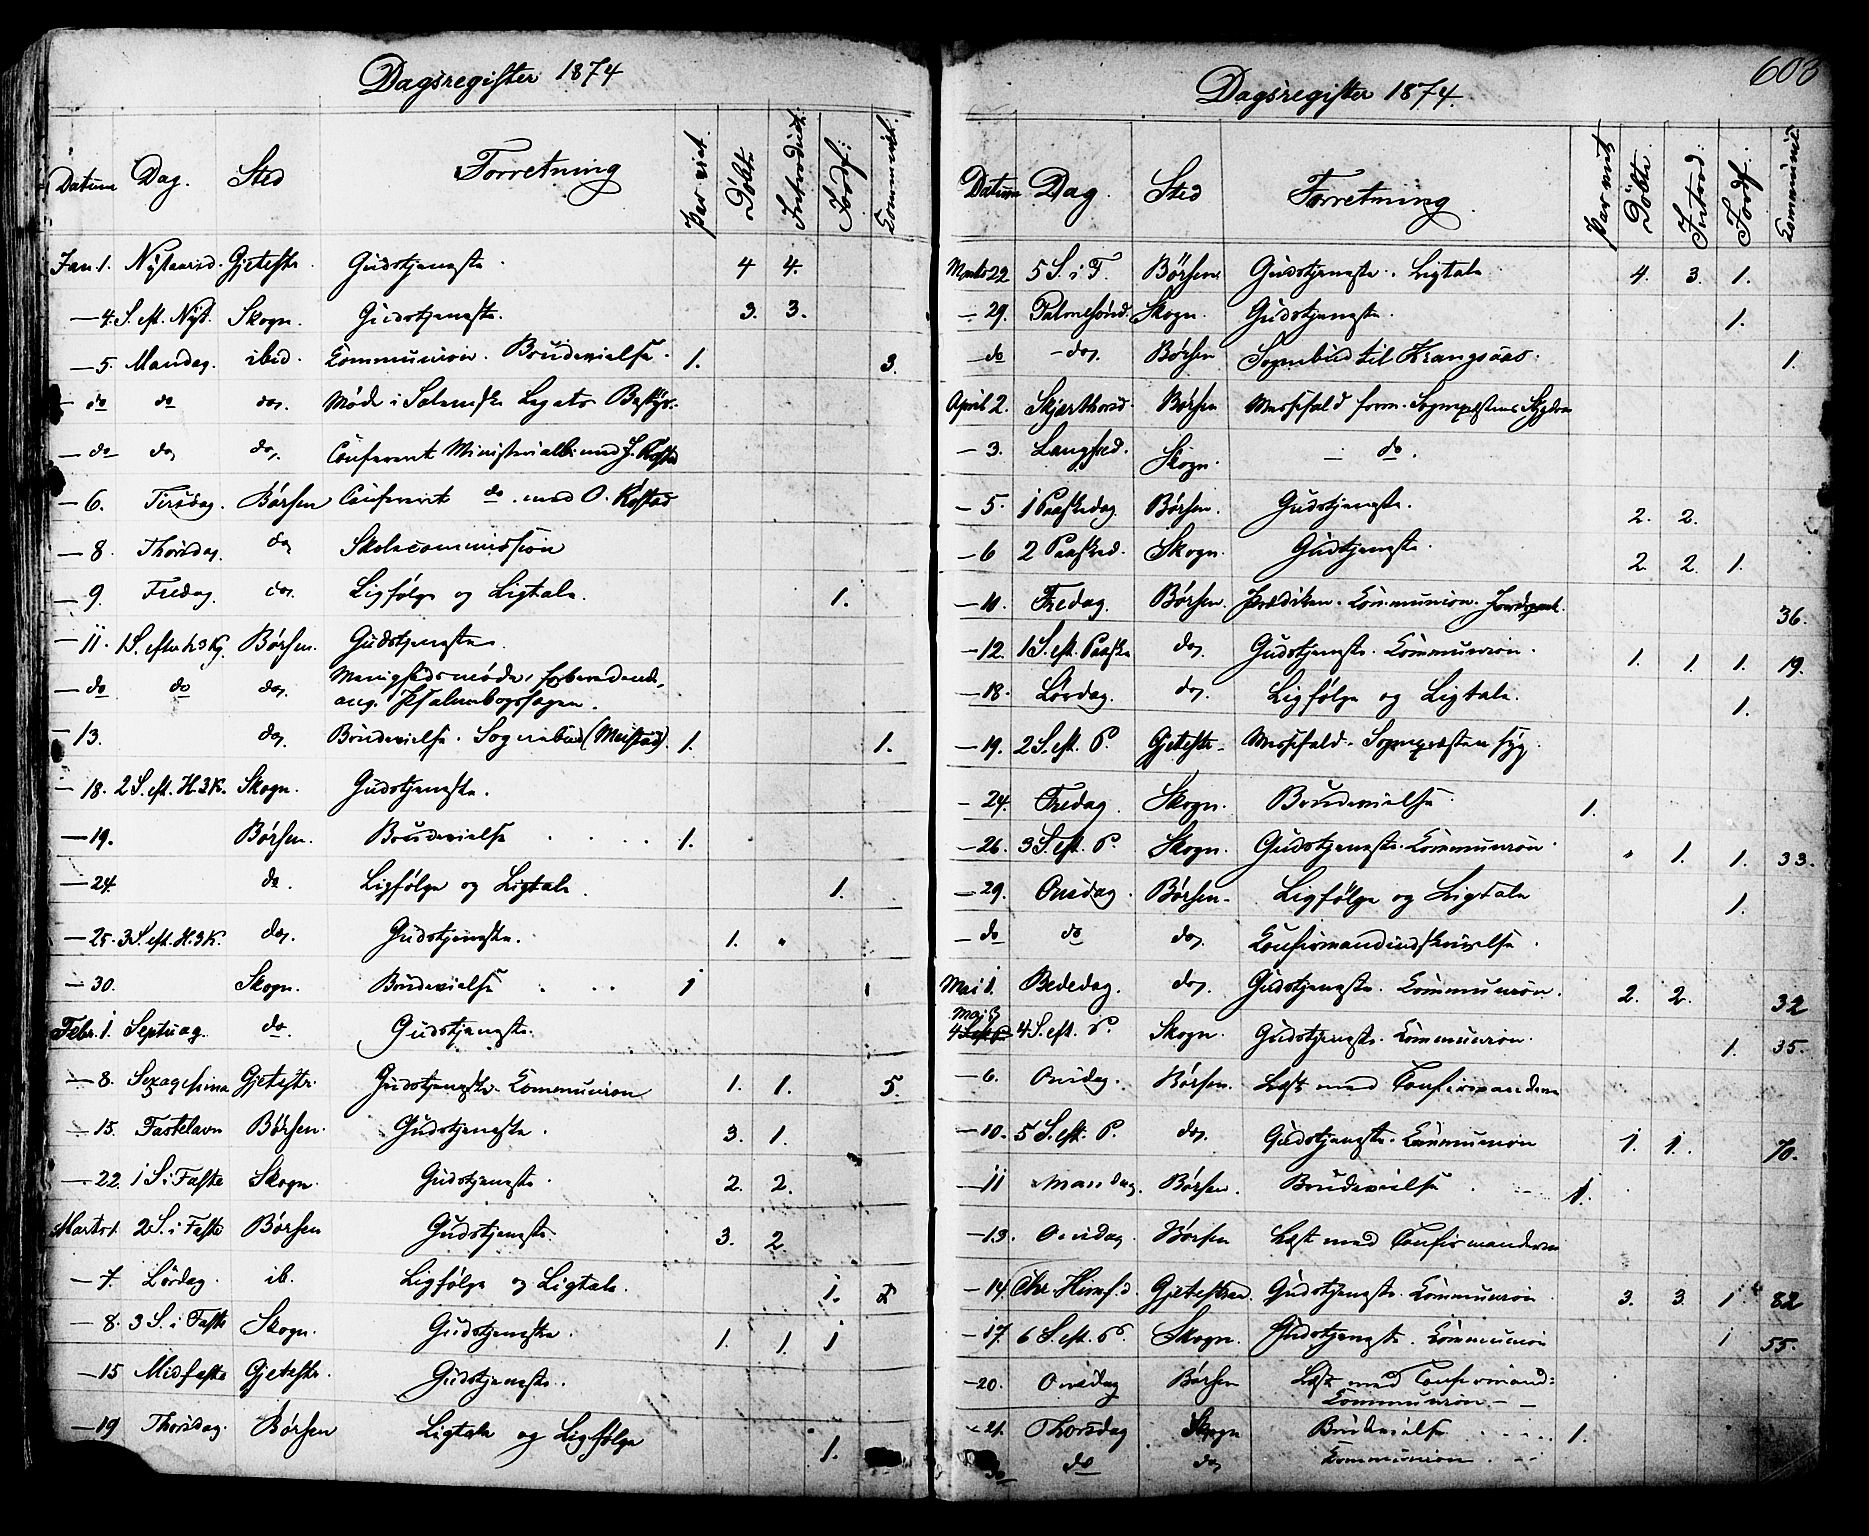 Dagsregister 1874
Datum Dag. Sted Forretning Par viet. Döbte Introduct. Jordf: Communic.
Jan. 1. Nytaarsd. Gjetestr. Gudstjeneste. 4 4.
— 4. S. eft. Nyt. Skogn. Gudstjeneste. 3. 3.
— 5. Mandag. ibid. Communion. Brudevielse. 1. 3.
— do do do. Møde i Legats Bestyr.
— do do do. Conferert Ministerialb. med J.
— 6. Tirsdag. Børsen Confereret do. med O.
— 8. Thorsdag. do Skolecommission
— 9. Fredag. do. Ligfølge og Ligtale. 1.
— 11. 1 S. efter h3K. Børsen. Gudstjeneste.
— do do do. Menighedsmøde, forberedende
ang. Psalmebogssagen.
— 13. do. Brudevielse. Sognebud (Meistad). 1. 1.
— 18. 2 S. eft. H.3K. Skogn. Gudstjeneste.
— 19. Børsen. Brudevielse . . . . 1.
— 24. do. Ligfølge og Ligtale. 1.
— 25. 3 S. eft. H.3K. do. Gudstjeneste. 1. "
— 30. Skogn. Brudevielse . . . 1
Febr. 1. Septuag. do. Gudstjeneste.
— 8. Sexagesima Gjetestr. Gudstjeneste. Communion 1. 1. 5.
— 15. Fastelavn Børsen. Gudstjeneste. 3. 1.
— 22. 1 S. i Faste Skogn. Gudstjeneste. 2. 2.
Marts 1. 2 S. i Faste Børsen Gudstjeneste. 3. 2.
— 7. Lördag. ib. Ligfølge og Ligtale. 1. 2
— 8. 3 S. i Faste Skogn. Gudstjeneste. 1. 1. 1
— 15 Midfaste Gjetestr. Gudstjeneste.
— 19 Thorsdag. Børsen Ligtale og Ligfølge 1.
603
Dagsregister 1874.
Datum Dag Sted Forretning. Par viet Döbte. Introd: Jordf. Communic.
Marts 22 5 S. i F. Børsen. Gudstjeneste. Ligtale 4. 3. 1.
— 29. Palmesönd. Skogn. Gudstjeneste. 1.
— do do. Børsen Sognebud til Krangsaas. 1.
April 2. Skjærthorsd Børsen Messefald form. Sognepræstens Sygdom
— 3. Langfred. Skogn. — do.
— 5. 1 Paaskedag Børsen. Gudstjeneste. 2. 2.
— 6 2 Paasked. Skogn. Gudstjeneste. 2. 2. 1.
— 10. Fredag. Børsen. Prædiken. Communion. 36.
— 12. 1 S. eft. Paaske do. Gudstjeneste. Communion. 1. 1. 1. 19.
— 18. Lördag. do. Ligfølge og Ligtale. 1.
— 19. 2 S. eft. P. Gjetestr. Messefald. Sognepræsten syg.
— 24. Fredag. Skogn. Brudevielse. 1.
— 26. 3 S. eft. P. Skogn. Gudstjeneste. Communion. " 1. 1. 33.
— 29. Onsdag. Børsen. Ligfölge og Ligtale 1.
— do do do. Confirmandindskrivelse.
Mai 1. Bededag. do. Gudstjeneste. Communion. 2. 2. 32
Mai 3
4 S. eft. P. Skogn. Gudstjeneste. Communion. 1. 35.
— 6. Onsdag. Børsen. Læst med Confirmanderne
— 10. 5 S. eft. P. do. Gudstjeneste. Communion 1. 1. 70.
— 11 Mandag. Børsen. Brudevielse 1.
— 13. Onsdag. Børsen Læst med Confirmanderne
— 14. Chr. Himf.d. Gjetestrand. Gudstjeneste. Communion 3. 3. 1 82
— 17. 6 S. eft. P. Skogn. Gudstjeneste. Communion 1 55.
— 20. Onsdag Børsen Læst med Confirmand:
Communion. — —
— 21. Thorsdag Skogn Brudevielse . . . . . 1.
do do do Communion. . —